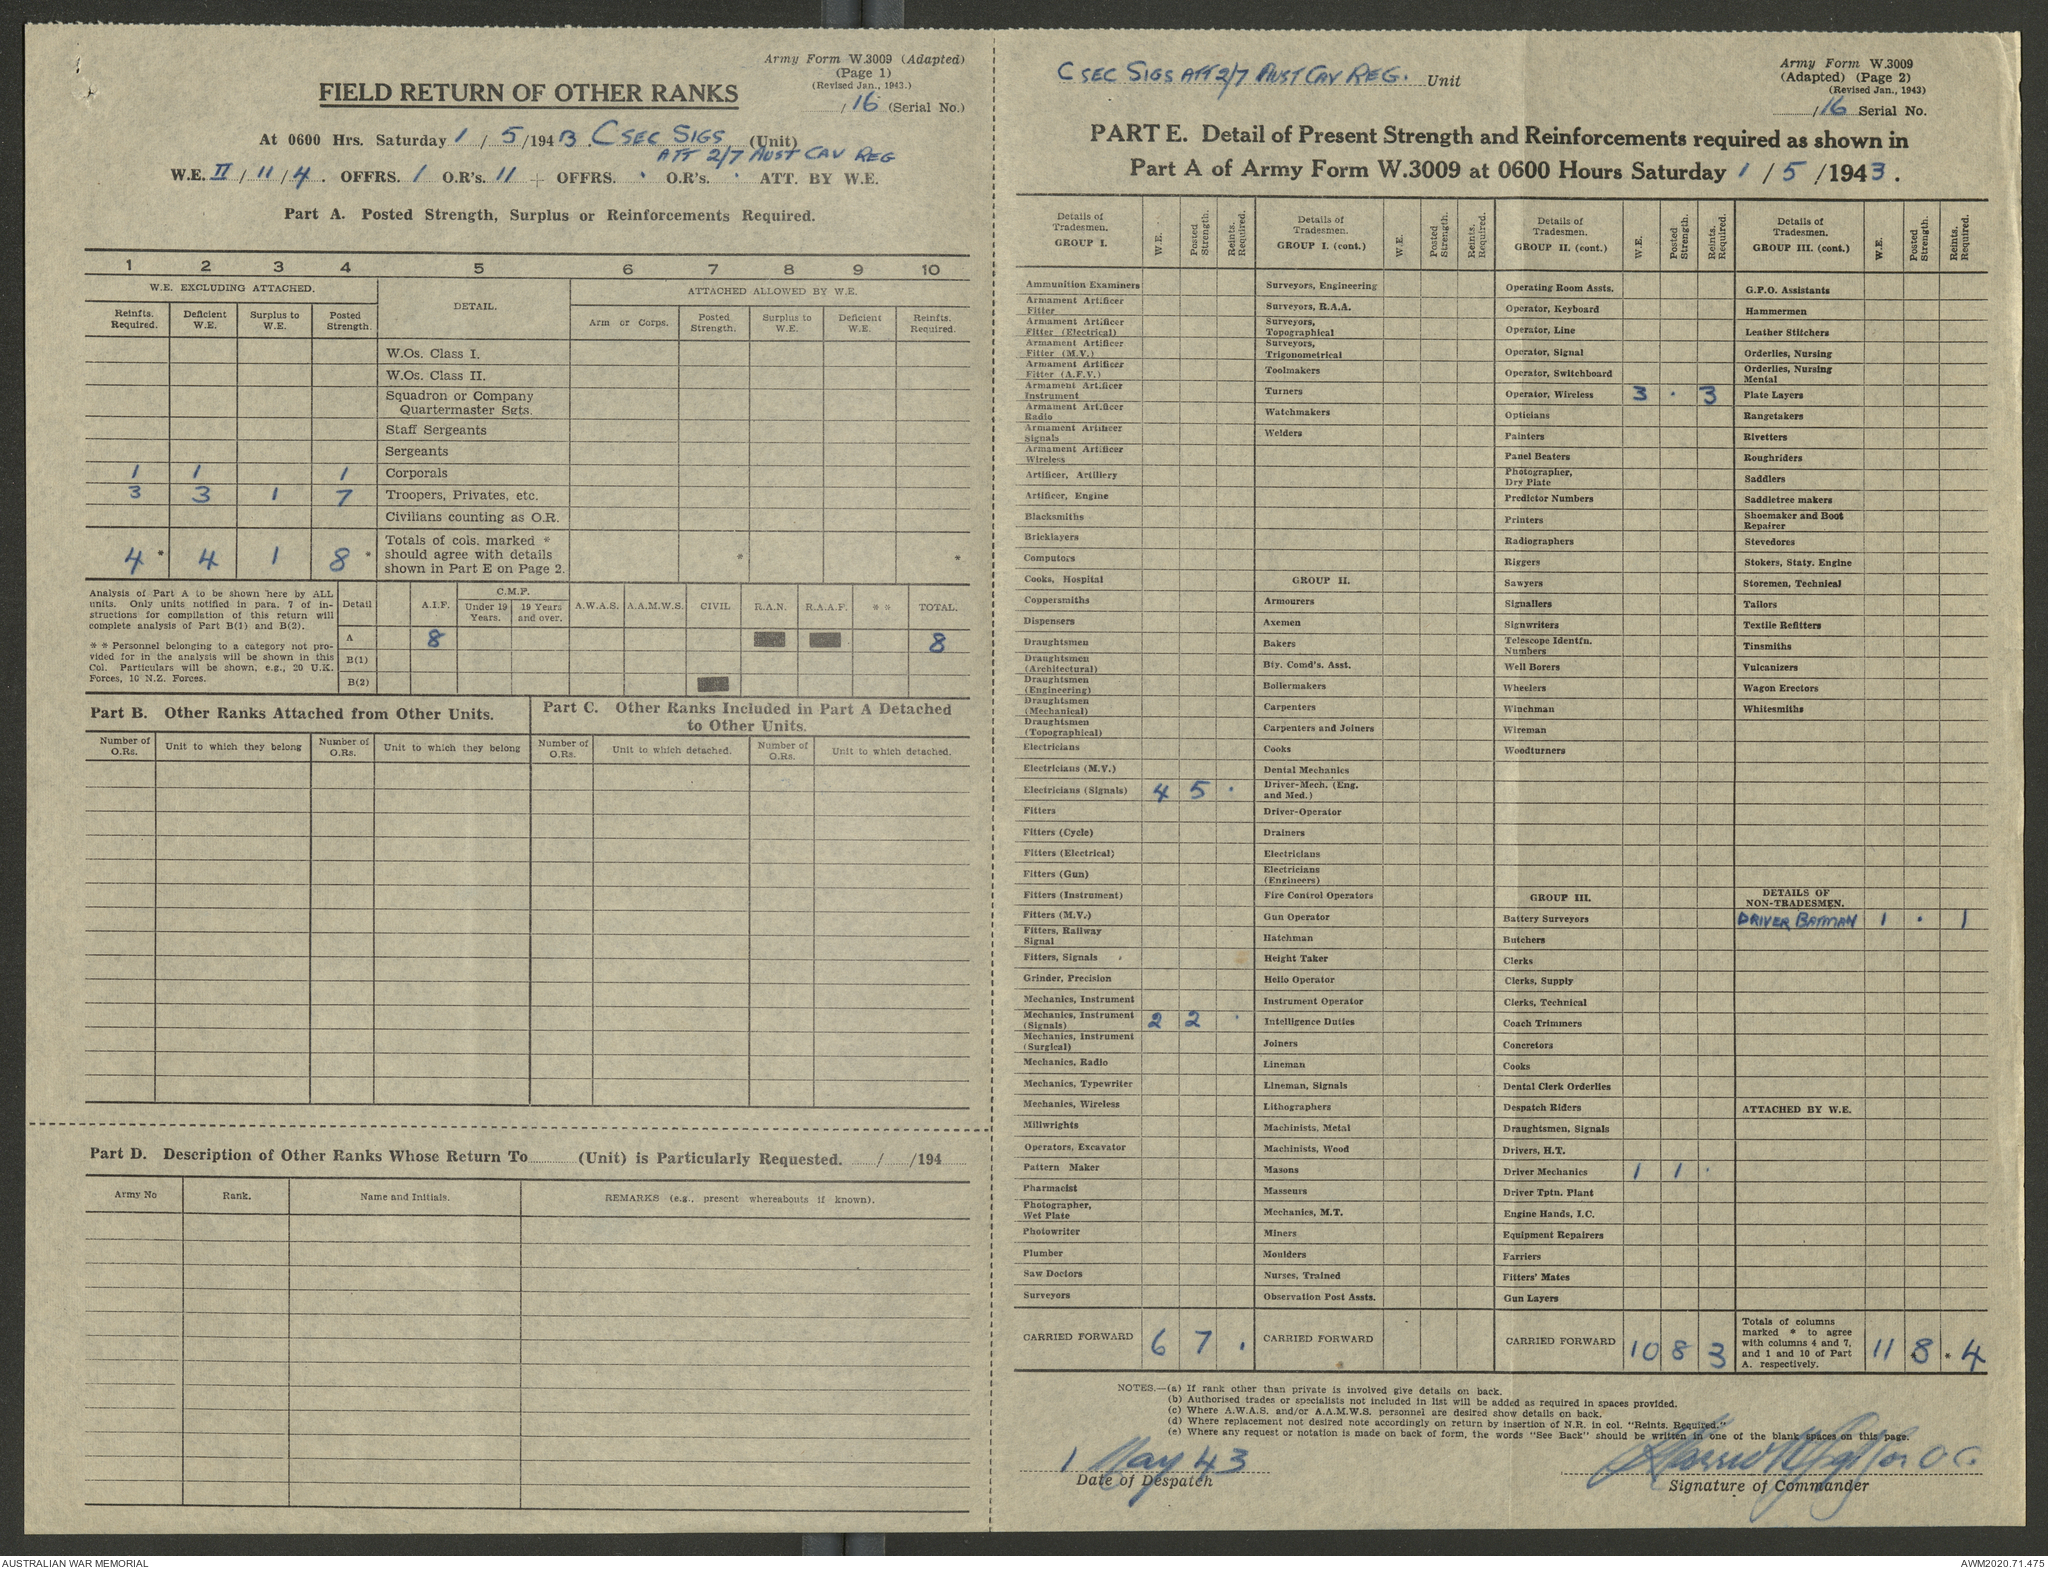 Army Form W.3009 (Adapted)
(Page 1)
(Revised Jan., 1943.)
/16 (Serial No.)
FIELD RETURN OF OTHER RANKS
At 0600 Hrs. Saturday 1 / 5 /1943. C SEC SIGS (Unit)
ATT 2/7 AUST CAV REG
W.E. II / 11 / 4 . OFFRS. 1 O.R's. 11 + OFFRS. . O.R's. . ATT. BY W.E.
Part A. Posted Strength, Surplus or Reinforcements Required.
1 2 3 4 5 6 7 8 9 10
W.E. EXCLUDING ATTACHED. DETAIL. ATTACHED ALLOWED BY W.E.
Reinfts. Required. Deficient W.E. Surplus to W.E. Posted Strength. Arm or Corps. Posted Strength. Surplus to W.E. Deficient W.E. Reinfts. Required.
W.Os. Class I.
W.Os. Class II.
Squadron or Company
Quartermaster Sgts.
Staff Sergeants
Sergeants
1 1 1 Corporals
3 3 1 7 Troopers, Privates, etc.
Civilians counting as O.R.
4 * 4 1 8 * Totals of cols. marked * should agree with details shown in Part E on Page 2. * *
Analysis of Part A to be shown here by ALL
units. Only units notified in para. 7 of in-
structions for compilation of this return will
complete analysis of Part B(1) and B(2).
* * Personnel belonging to a category not pro-
vided for in the analysis will be shown in this
Col. Particulars will be shown, e.g., 20 U.K.
Forces, 10 N.Z. Forces.
Detail A.I.F. C.M.F. Under 19 Years. 19 Years and over. A.W.A.S. A.A.M.W.S. CIVIL R.A.N. R.A.A.F. * * TOTAL.
A 8 8
B(1)
B(2)
Part B. Other Ranks Attached from Other Units.
Number of O.Rs. Unit to which they belong Number of O.Rs. Unit to which they belong
Part C. Other Ranks Included in Part A Detached
to Other Units.
Number of O.Rs. Unit to which detached. Number of O.Rs. Unit to which detached.
Part D. Description of Other Ranks Whose Return To (Unit) is Particularly Requested. / /194
Army No Rank. Name and Initials. REMARKS (e.g., present whereabouts if known).
C SEC SIGS ATT 2/7 AUST CAV REG. Unit
Army Form W.3009
(Adapted) (Page 2)
(Revised Jan., 1943)
/16 Serial No.
PART E. Detail of Present Strength and Reinforcements required as shown in
Part A of Army Form W.3009 at 0600 Hours Saturday 1 / 5 /1943.
Details of Tradesmen. GROUP I. W.E. Posted Strength. Reints. Required.
Ammunition Examiners
Armament Artificer Fitter
Armament Artificer Fitter (Electrical)
Armament Artificer Fitter (M.V.)
Armament Artificer Fitter (A.F.V.)
Armament Artificer Instrument
Armament Artificer Radio
Armament Artificer Signals
Armament Artificer Wireless
Artificer, Artillery
Artificer, Engine
Blacksmiths
Bricklayers
Computors
Cooks, Hospital
Coppersmiths
Dispensers
Draughtsmen
Draughtsmen (Architectural)
Draughtsmen (Engineering)
Draughtsmen (Mechanical)
Draughtsmen (Topographical)
Electricians
Electricians (M.V.)
Electricians (Signals) 4 5 .
Fitters
Fitters (Cycle)
Fitters (Electrical)
Fitters (Gun)
Fitters (Instrument)
Fitters (M.V.)
Fitters, Railway Signal
Fitters, Signals
Grinder, Precision
Mechanics, Instrument
Mechanics, Instrument (Signals) 2 2 .
Mechanics, Instrument (Surgical)
Mechanics, Radio
Mechanics, Typewriter
Mechanics, Wireless
Millwrights
Operators, Excavator
Pattern Maker
Pharmacist
Photographer, Wet Plate
Photowriter
Plumber
Saw Doctors
Surveyors
CARRIED FORWARD 6 7 .
Details of Tradesmen. GROUP I. (cont.) W.E. Posted Strength. Reints. Required.
Surveyors, Engineering
Surveyors, R.A.A.
Surveyors, Topographical
Surveyors, Trigonometrical
Toolmakers
Turners
Watchmakers
Welders
GROUP II.
Armourers
Axemen
Bakers
Bty. Comd's. Asst.
Boilermakers
Carpenters
Carpenters and Joiners
Cooks
Dental Mechanics
Driver-Mech. (Eng. and Med.)
Driver-Operator
Drainers
Electricians
Electricians (Engineers)
Fire Control Operators
Gun Operator
Hatchman
Height Taker
Helio Operator
Instrument Operator
Intelligence Duties
Joiners
Lineman
Lineman, Signals
Lithographers
Machinists, Metal
Machinists, Wood
Masons
Masseurs
Mechanics, M.T.
Miners
Moulders
Nurses, Trained
Observation Post Assts.
CARRIED FORWARD
Details of Tradesmen. GROUP II. (cont.) W.E. Posted Strength. Reints. Required.
Operating Room Assts.
Operator, Keyboard
Operator, Line
Operator, Signal
Operator, Switchboard
Operator, Wireless 3 . 3
Opticians
Painters
Panel Beaters
Photographer, Dry Plate
Predictor Numbers
Printers
Radiographers
Riggers
Sawyers
Signallers
Signwriters
Telescope Identfn. Numbers
Well Borers
Wheelers
Winchman
Wireman
Woodturners
GROUP III.
Battery Surveyors
Butchers
Clerks
Clerks, Supply
Clerks, Technical
Coach Trimmers
Concretors
Cooks
Dental Clerk Orderlies
Despatch Riders
Draughtsmen, Signals
Drivers, H.T.
Driver Mechanics 1 1 .
Driver Tptn. Plant
Engine Hands, I.C.
Equipment Repairers
Farriers
Fitters' Mates
Gun Layers
CARRIED FORWARD 10 8 3
Details of Tradesmen. GROUP III. (cont.) W.E. Posted Strength. Reints. Required.
G.P.O. Assistants
Hammermen
Leather Stitchers
Orderlies, Nursing
Orderlies, Nursing Mental
Plate Layers
Rangetakers
Rivetters
Roughriders
Saddlers
Saddletree makers
Shoemaker and Boot Repairer
Stevedores
Stokers, Staty. Engine
Storemen, Technical
Tailors
Textile Refitters
Tinsmiths
Vulcanizers
Wagon Erectors
Whitesmiths
DETAILS OF NON-TRADESMEN.
DRIVER BATMAN 1 . 1
ATTACHED BY W.E.
Totals of columns marked * to agree with columns 4 and 7, and 1 and 10 of Part A. respectively. 11 8 * 4
NOTES.—(a) If rank other than private is involved give details on back.
(b) Authorised trades or specialists not included in list will be added as required in spaces provided.
(c) Where A.W.A.S. and/or A.A.M.W.S. personnel are desired show details on back.
(d) Where replacement not desired note accordingly on return by insertion of N.R. in col. "Reints. Required."
(e) Where any request or notation is made on back of form, the words "See Back" should be written in one of the blank spaces on this page.
1 May 43
Date of Despatch
for O C.
Signature of Commander
AUSTRALIAN WAR MEMORIAL
AWM2020.71.475